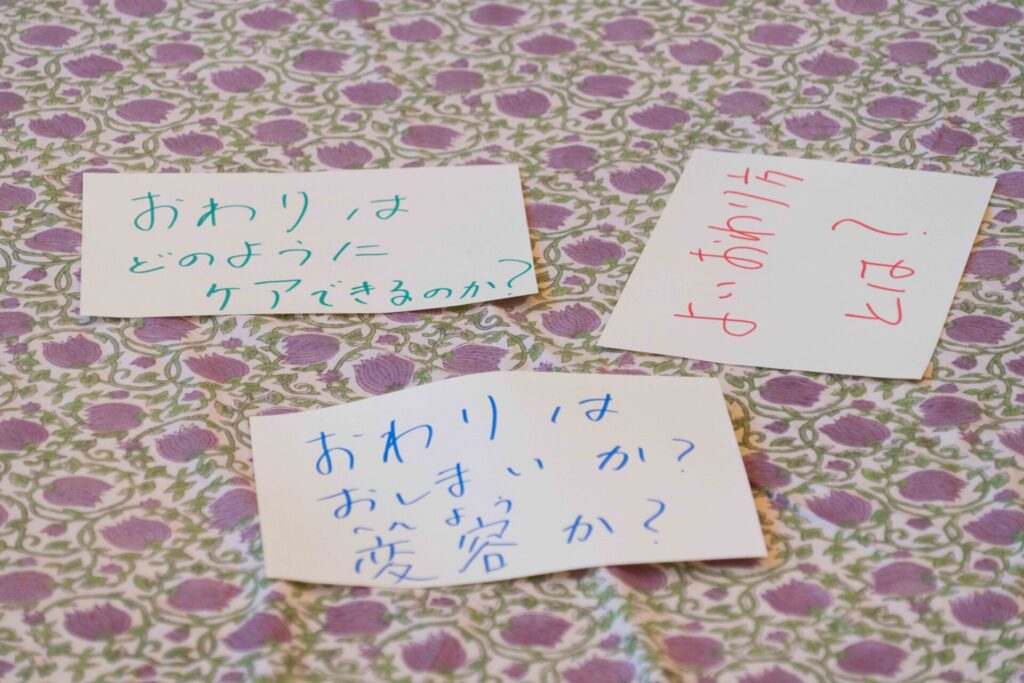 おわりは
どのように
ケアできるのか?
よいおわり方
とは?
おわりは
おしまいか?
へん よう
変容か?